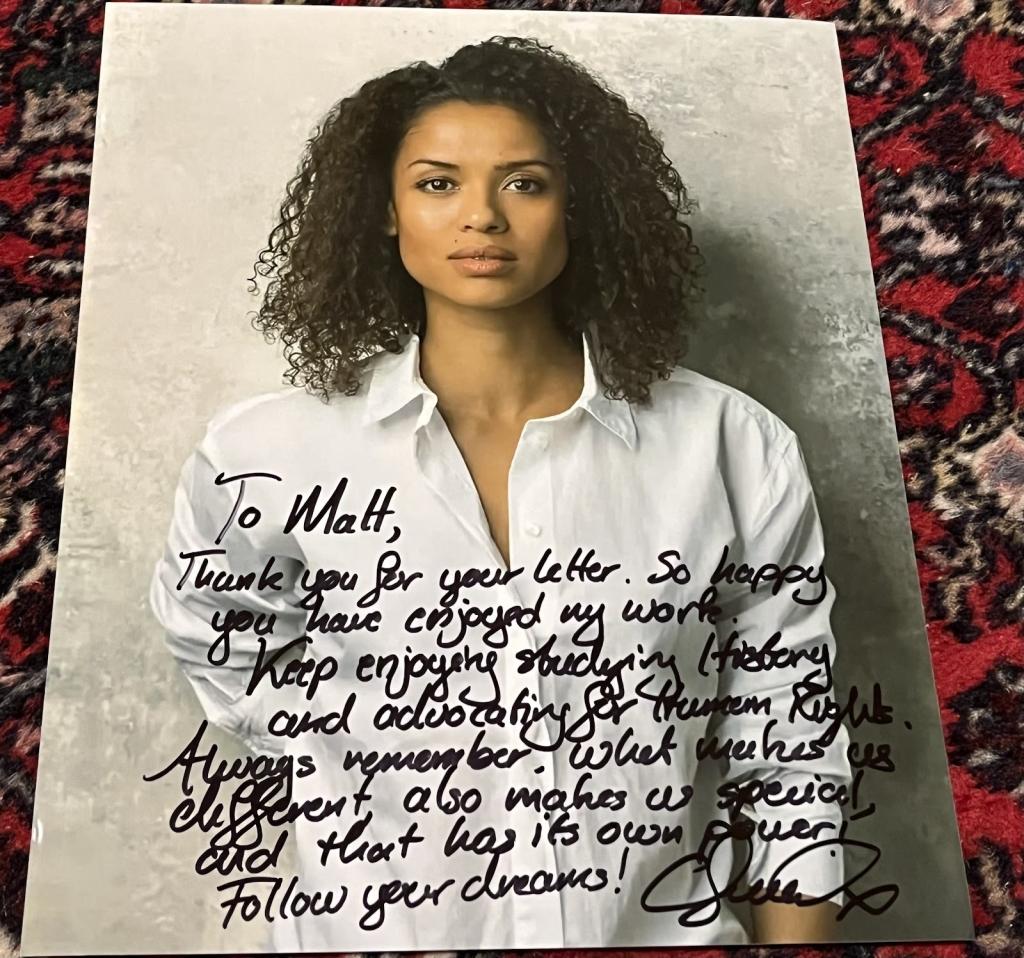 To Matt,
Thank you for your letter. So happy
you have enjoyed my work.
Keep enjoying studying History
and advocating for Human Rights.
Always remember, what makes us
different, also makes us special,
and that has its own power!
Follow your dreams!